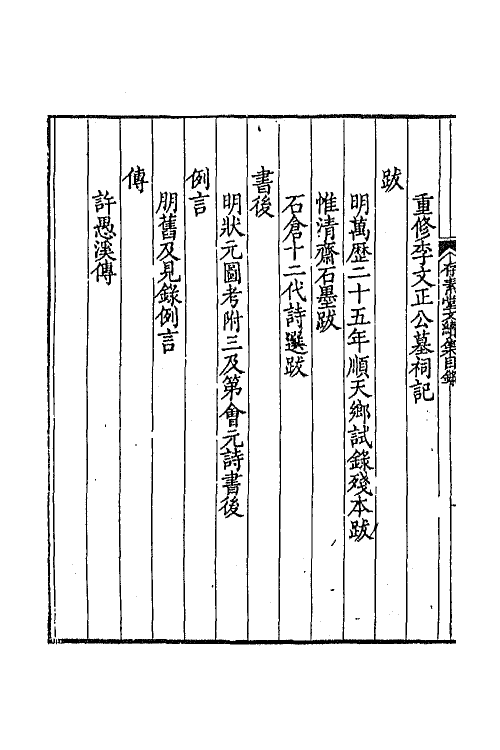 存素堂文續集目錄
重修李文正公墓祠記
跋
明萬歷二十五年順天鄉試錄殘本跋
惟清齋石墨跋
石倉十二代詩選跋
書後
明狀元圖考附三及第會元詩書後
例言
朋舊及見錄例言
傳
許愚溪傳